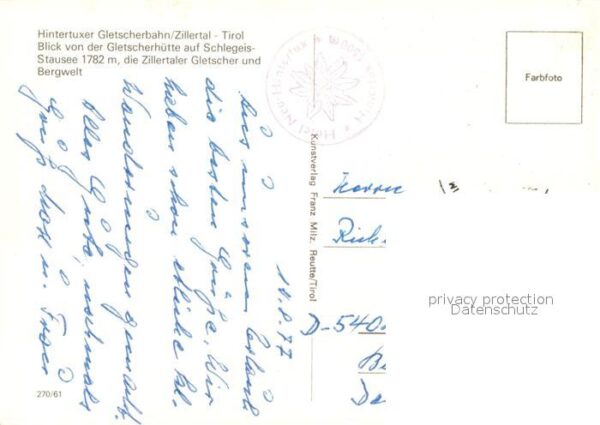 Hintertuxer Gletscherbahn/Zillertal - Tirol
Blick von der Gletscherhütte auf Schlegeis-
Stausee 1782 m, die Zillertaler Gletscher und
Bergwelt
Hotel Neu-Hintertux 1500m
Farbfoto
Kunstverlag Franz Milz, Reutte/Tirol
19.8.77
Aus unserem Urlaub
die besten Grüße. Wir
haben schon etliche kl.
Wanderungen gemacht.
Alles Gute, nochmals
Gruß u. Frau
Herrn
Rich
D-540
Be
Da
270/61
privacy protection
Datenschutz